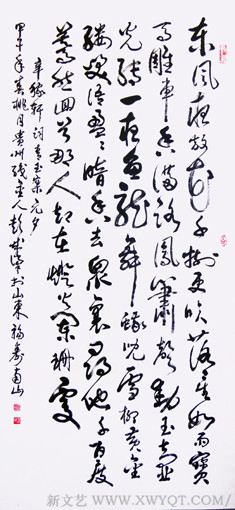 东风夜放花千树更吹落星如雨宝
马雕车香满路凤箫声动玉壶
光转一夜鱼龙舞蛾儿雪柳黄金
缕笑语盈盈暗香去众里寻他千百度
蓦然回首那人却在灯火阑珊处
辛稼轩词青玉案元夕
甲午年春桃月贵州主人彭于山东福寿南山
新文艺 WWW.XWYQT.COM